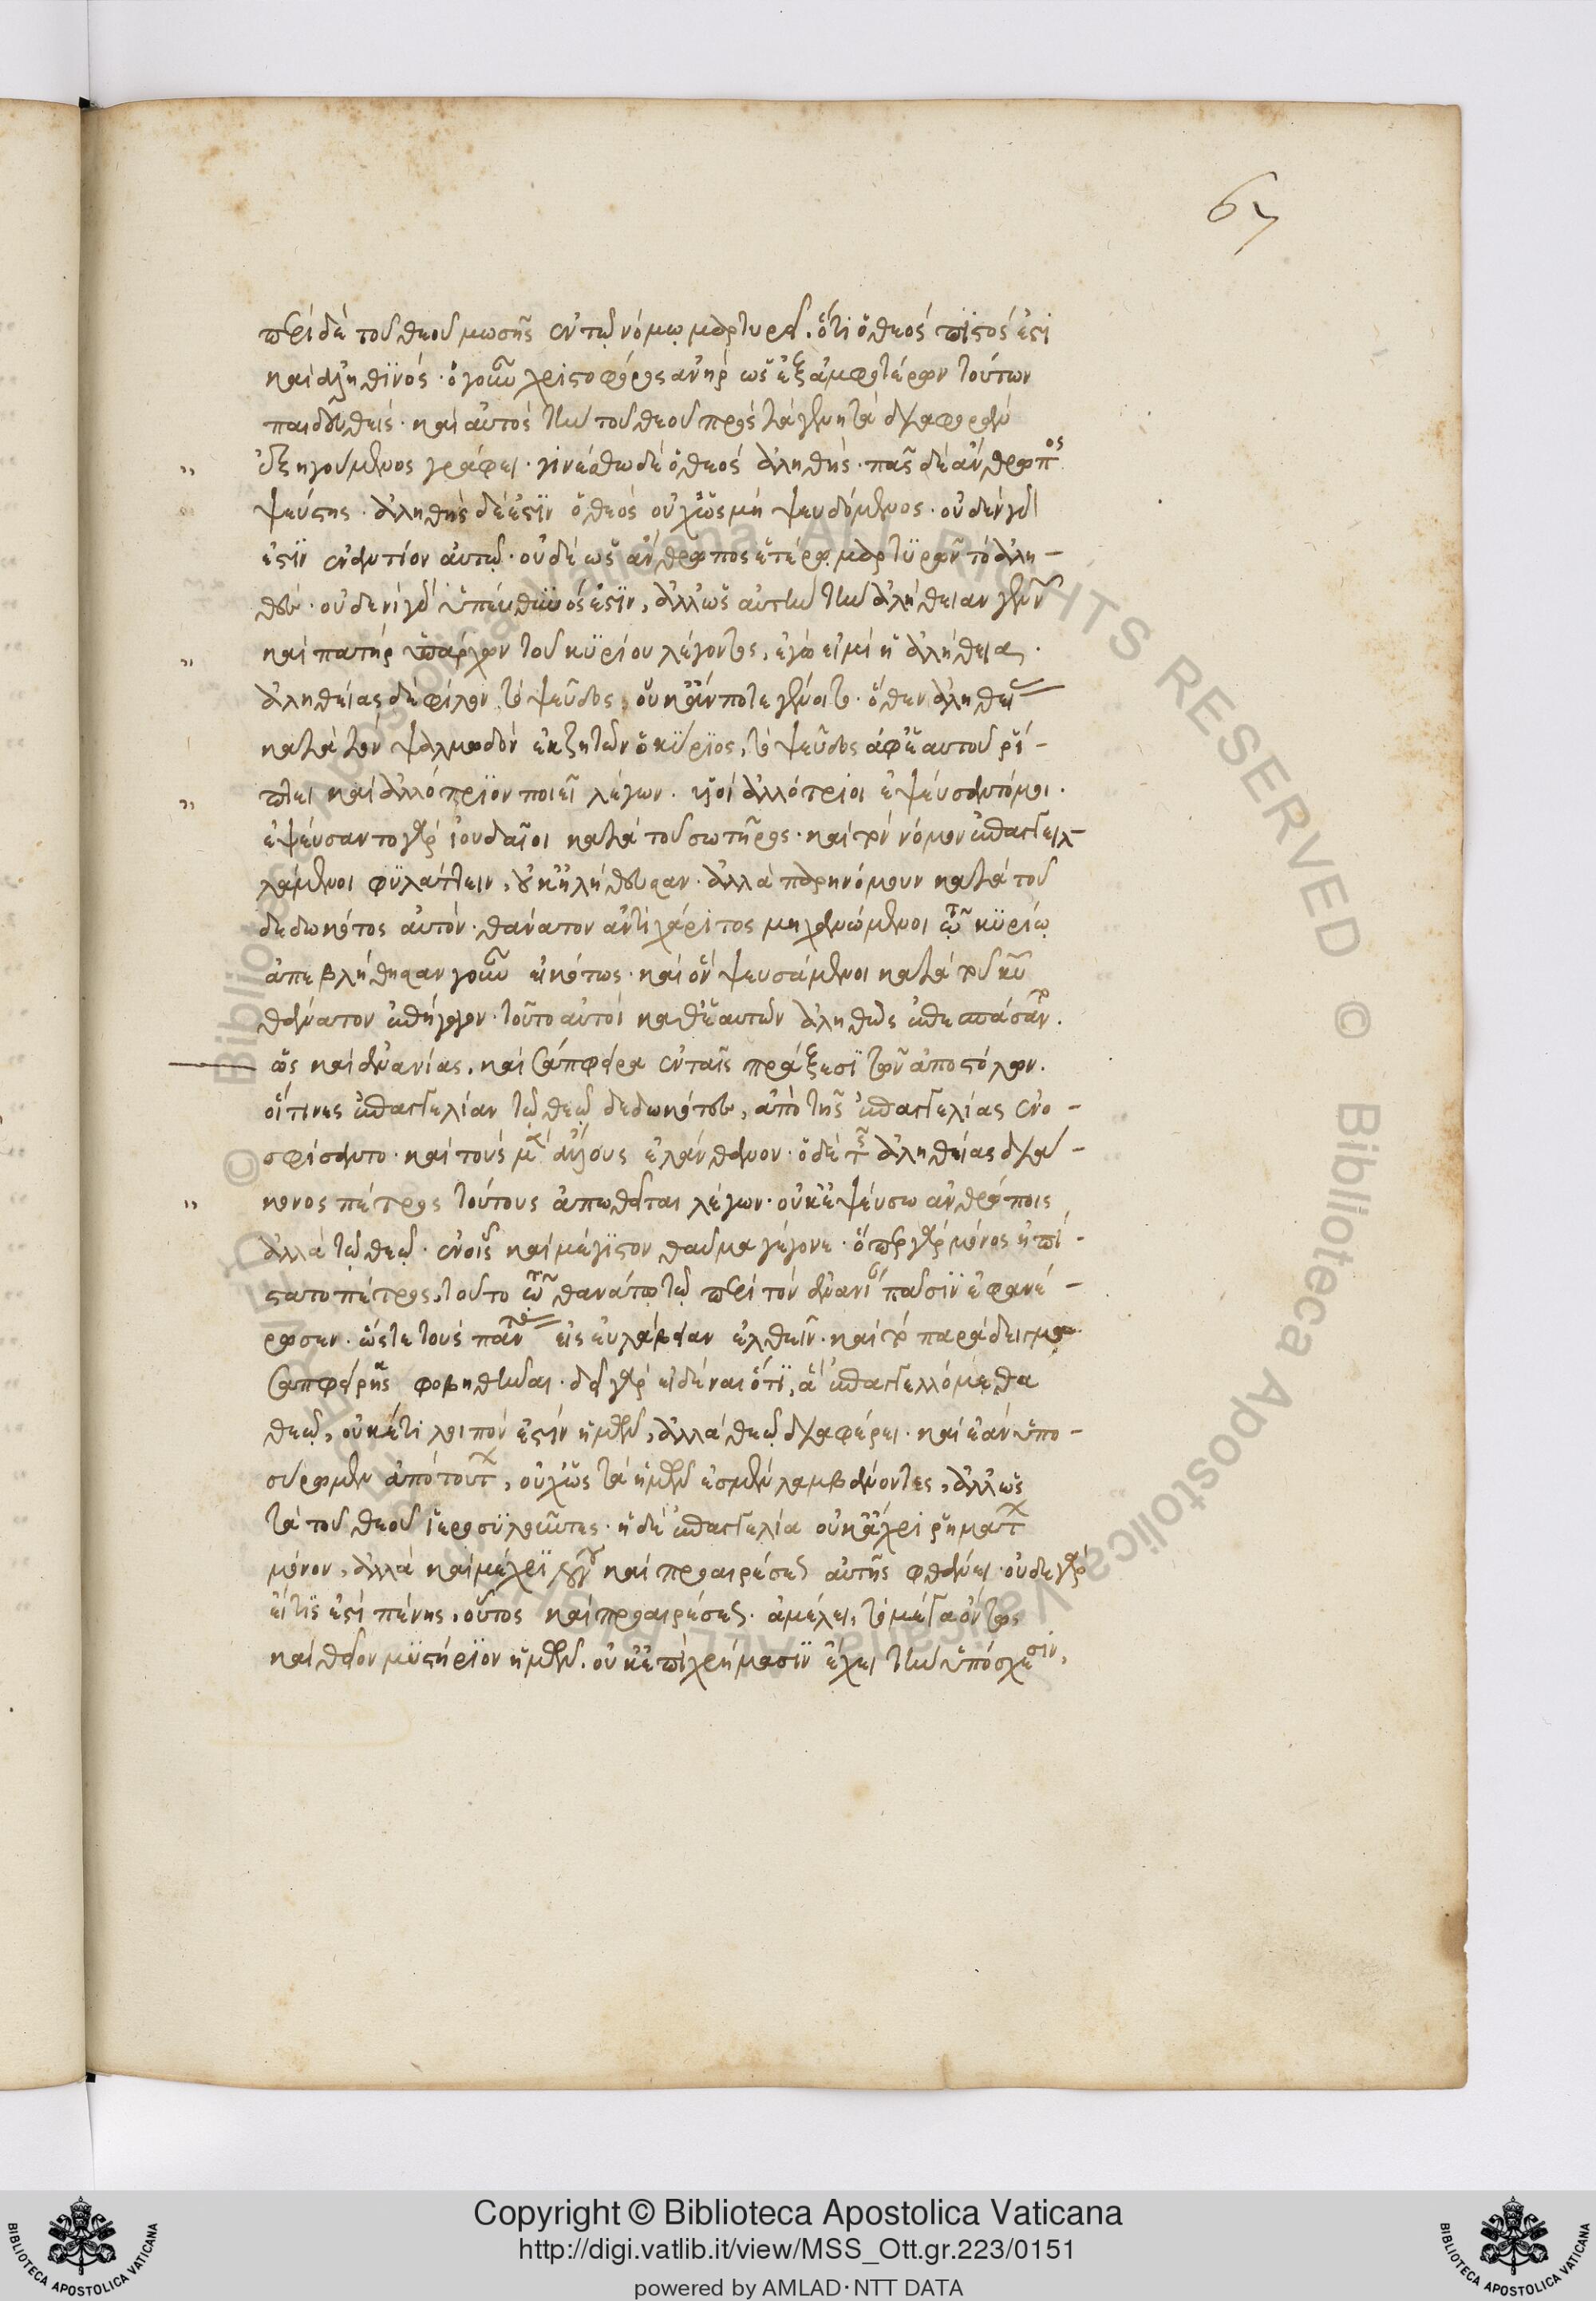 67
περὶ δὲ τοῦ θεοῦ μωσῆς ἐν τῷ νόμῳ μαρτυρεῖ. ὅτι ὁ θεὸς πιστός ἐστι
καὶ ἀληθινός· ὁ γοῦν χριστοφόρος ἀνὴρ ὡς ἐξ ἀμφοτέρων τούτων
παιδευθείς· καὶ αὐτὸς τὴν τοῦ θεοῦ πρὸς τὰ γενητὰ διαφορὰν
ἐξηγούμενος γράφει· γινέσθω δὲ ὁ θεὸς ἀληθής· πᾶς δὲ ἄνθρωπος
ψεύστης· ἀληθὴς δέ ἐστιν ὁ θεὸς οὐχ ὡς μὴ ψευδόμενος· οὐδὲν γάρ
ἐστιν ἐναντίον αὐτῷ· οὐδὲ ὡς ἄνθρωπος ἑτέρῳ μαρτυρῶν τὸ ἀλη-
θές· οὐδενὶ γὰρ ὑπεύθυνός ἐστιν, ἀλλ' ὡς αὐτὴν τὴν ἀλήθειαν γεννῶν
καὶ πατὴρ ὑπάρχων τοῦ κυρίου λέγοντος, ἐγώ εἰμι ἡ ἀλήθεια·
ἀληθείας δὲ φίλον τὸ ψεῦδος, οὐκ ἄν ποτε γένοιτο· ὅθεν ἀληθείας
κατὰ τὸν ψαλμῳδὸν ἐκζητῶν ὁ κύριος, τὸ ψεῦδος ἀφ' ἑαυτοῦ ῥί-
πτει καὶ ἀλλότριον ποιεῖ λέγων· υἱοὶ ἀλλότριοι ἐψεύσαντό μοι·
ἐψεύσαντο γὰρ ἰουδαῖοι κατὰ τοῦ σωτῆρος· καὶ τὸν νόμον ἐπαγγειλ-
λάμενοι φυλάττειν, οὐκ ἠλήθευσαν· ἀλλὰ παρηνόμουν κατὰ τοῦ
δεδωκότος αὐτόν· θάνατον ἀντὶ χάριτος μηχανώμενοι τῷ κυρίῳ
ἀπεβλήθησαν γοῦν εἰκότως· καὶ ὃν ψευσάμενοι κατὰ τοῦ κυ
θάνατον ἐπήγαγον· τοῦτο αὐτοὶ καθ' ἑαυτῶν ἀληθῶς ἐπεσπάσαντο.
ὡς καὶ ἀνανίας, καὶ σάπφειρα ἐν ταῖς πράξεσι τῶν ἀποστόλων.
οἵτινες ἐπαγγελίαν τῷ θεῷ δεδωκότες, ἀπὸ τῆς ἐπαγγελίας ἐνο-
σφίσαντο· καὶ τοὺς μὲν ἄλλους ἐλάνθανον· ὁ δὲ τῆς ἀληθείας διά-
κονος πέτρος τούτους ἀπωθεῖται λέγων· οὐκ ἐψεύσω ἀνθρώποις
ἀλλὰ τῷ θεῷ· ἐν οἷς καὶ μέγιστον θαῦμα γέγονε· ὅπερ γὰρ μόνος ἠπί-
στατο πέτρος, τοῦτο τῷ θανάτῳ τῷ περὶ τὸν ἀνανίαν πᾶσιν ἐφανέ-
ρωσεν· ὥστε τοὺς πάντας εἰς εὐλάβειαν ἐλθεῖν· καὶ τὸ παράδειγμα
σαπφείρης φοβηθῆναι· δεῖ γὰρ εἰδέναι ὅτι, ἃ ἐπαγγελλόμεθα
θεῷ, οὐκέτι λοιπόν ἐστιν ἡμῶν, ἀλλὰ θεῷ διαφέρει· καὶ ἐὰν ὑπο-
σύρωμεν ἀπὸ τούτων, οὐχ ὡς τὰ ἡμῶν ἐσμὲν λαμβάνοντες, ἀλλ' ὡς
τὰ τοῦ θεοῦ ἱεροσυλοῦντες· ἡ δὲ ἐπαγγελία οὐκ ἄχρι ῥημάτων
μόνον, ἀλλὰ καὶ μέχρι λόγου καὶ προαιρέσεως αὐτῆς φθάνει· οὐδὲ γὰρ
εἴ τίς ἐστι πένης, οὗτος καὶ προαιρέσεως· ἀμέλει, τὸ μέγα ὄντως
καὶ θεῖον μυστήριον ἡμῶν. οὐκ ἐπὶ χρήμασιν ἔχει τὴν ὑπόσχεσιν,
© Biblioteca Apostolica Vaticana. ALL RIGHTS RESERVED
Copyright © Biblioteca Apostolica Vaticana
http://digi.vatlib.it/view/MSS_Ott.gr.223/0151
powered by AMLAD·NTT DATA
BIBLIOTECA APOSTOLICA VATICANA
BIBLIOTECA APOSTOLICA VATICANA